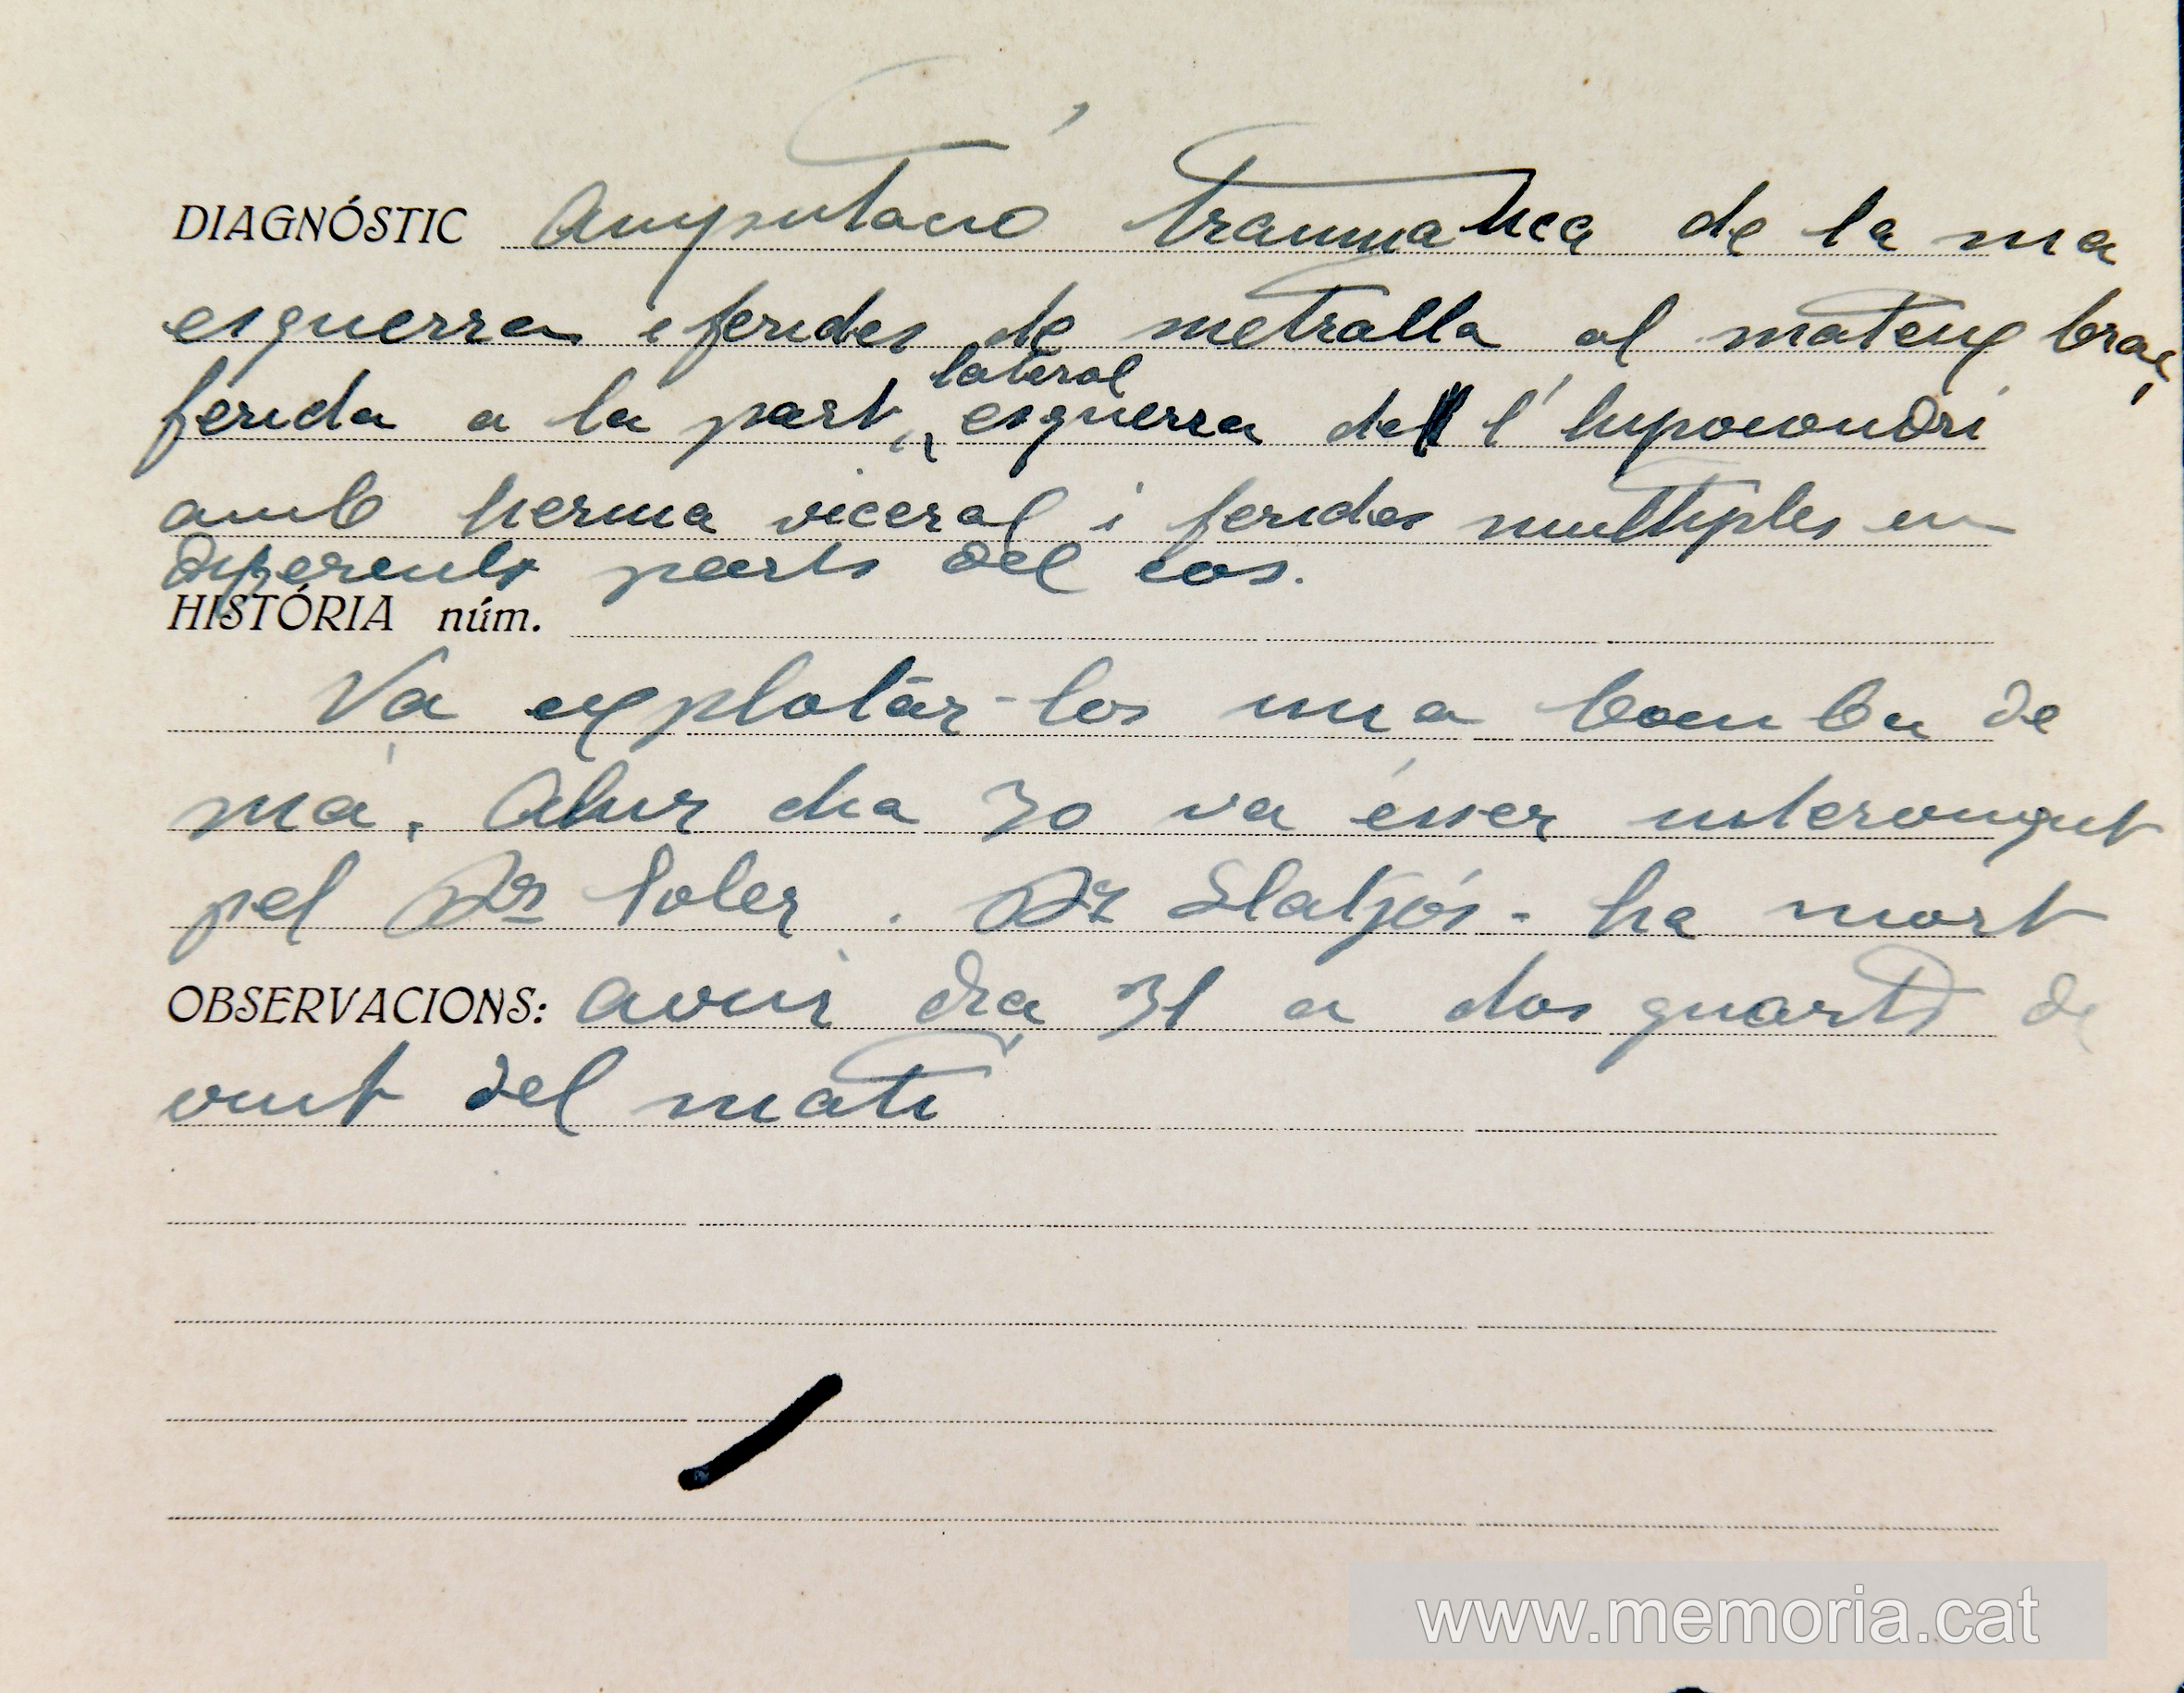 DIAGNÓSTIC Amputació traumatica de la ma
esquerra i ferides de metralla al mateix braç,
lateral
ferida a la part esquerra de l'hipocondri
amb hernia viceral i ferides multiples en
diferents parts del cos.
HISTÓRIA núm.
Va explotár-los una bomba de
má. Ahir dia 30 va ésser intervingut
pel Dr Soler. Dr Llatjós - ha mort
OBSERVACIONS: avui dia 31 a dos quarts de
vuit del mati
www.memoria.cat